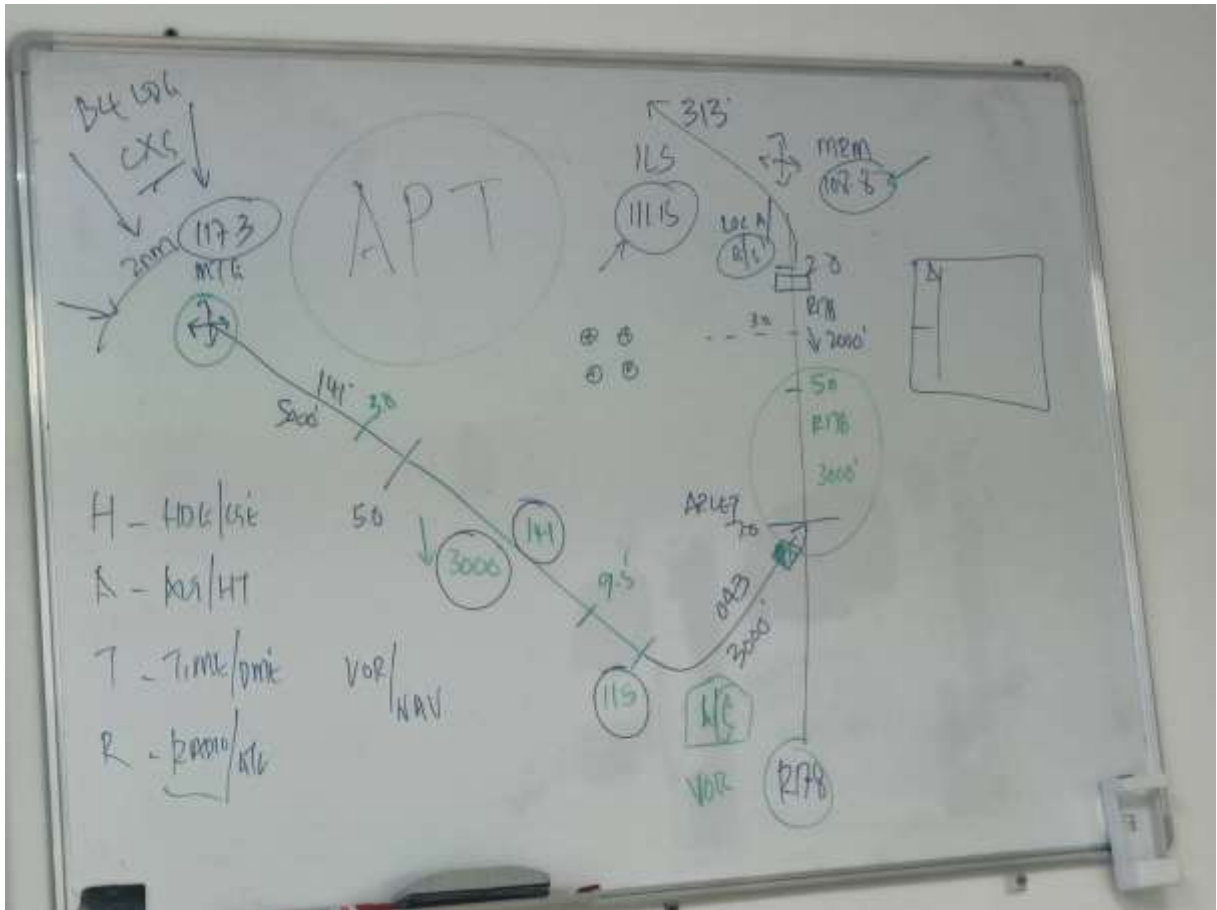 B4 LDG
CXS
2nm
117.3
MTG
APT
ILS
111.15
313°
MRM
108.8
LOC A
2.8
R178
3.0
↓ 2000'
5.0
R178
3000'
141°
5000'
3.0
5.0
↓
3000
141
9.5
11.5
ARLET
7.0
043
3000'
VOR
R178
H - HDG/CSE
A - ALT/HT
T - TIME/DME
R - RADIO/ATC
VOR/
NAV